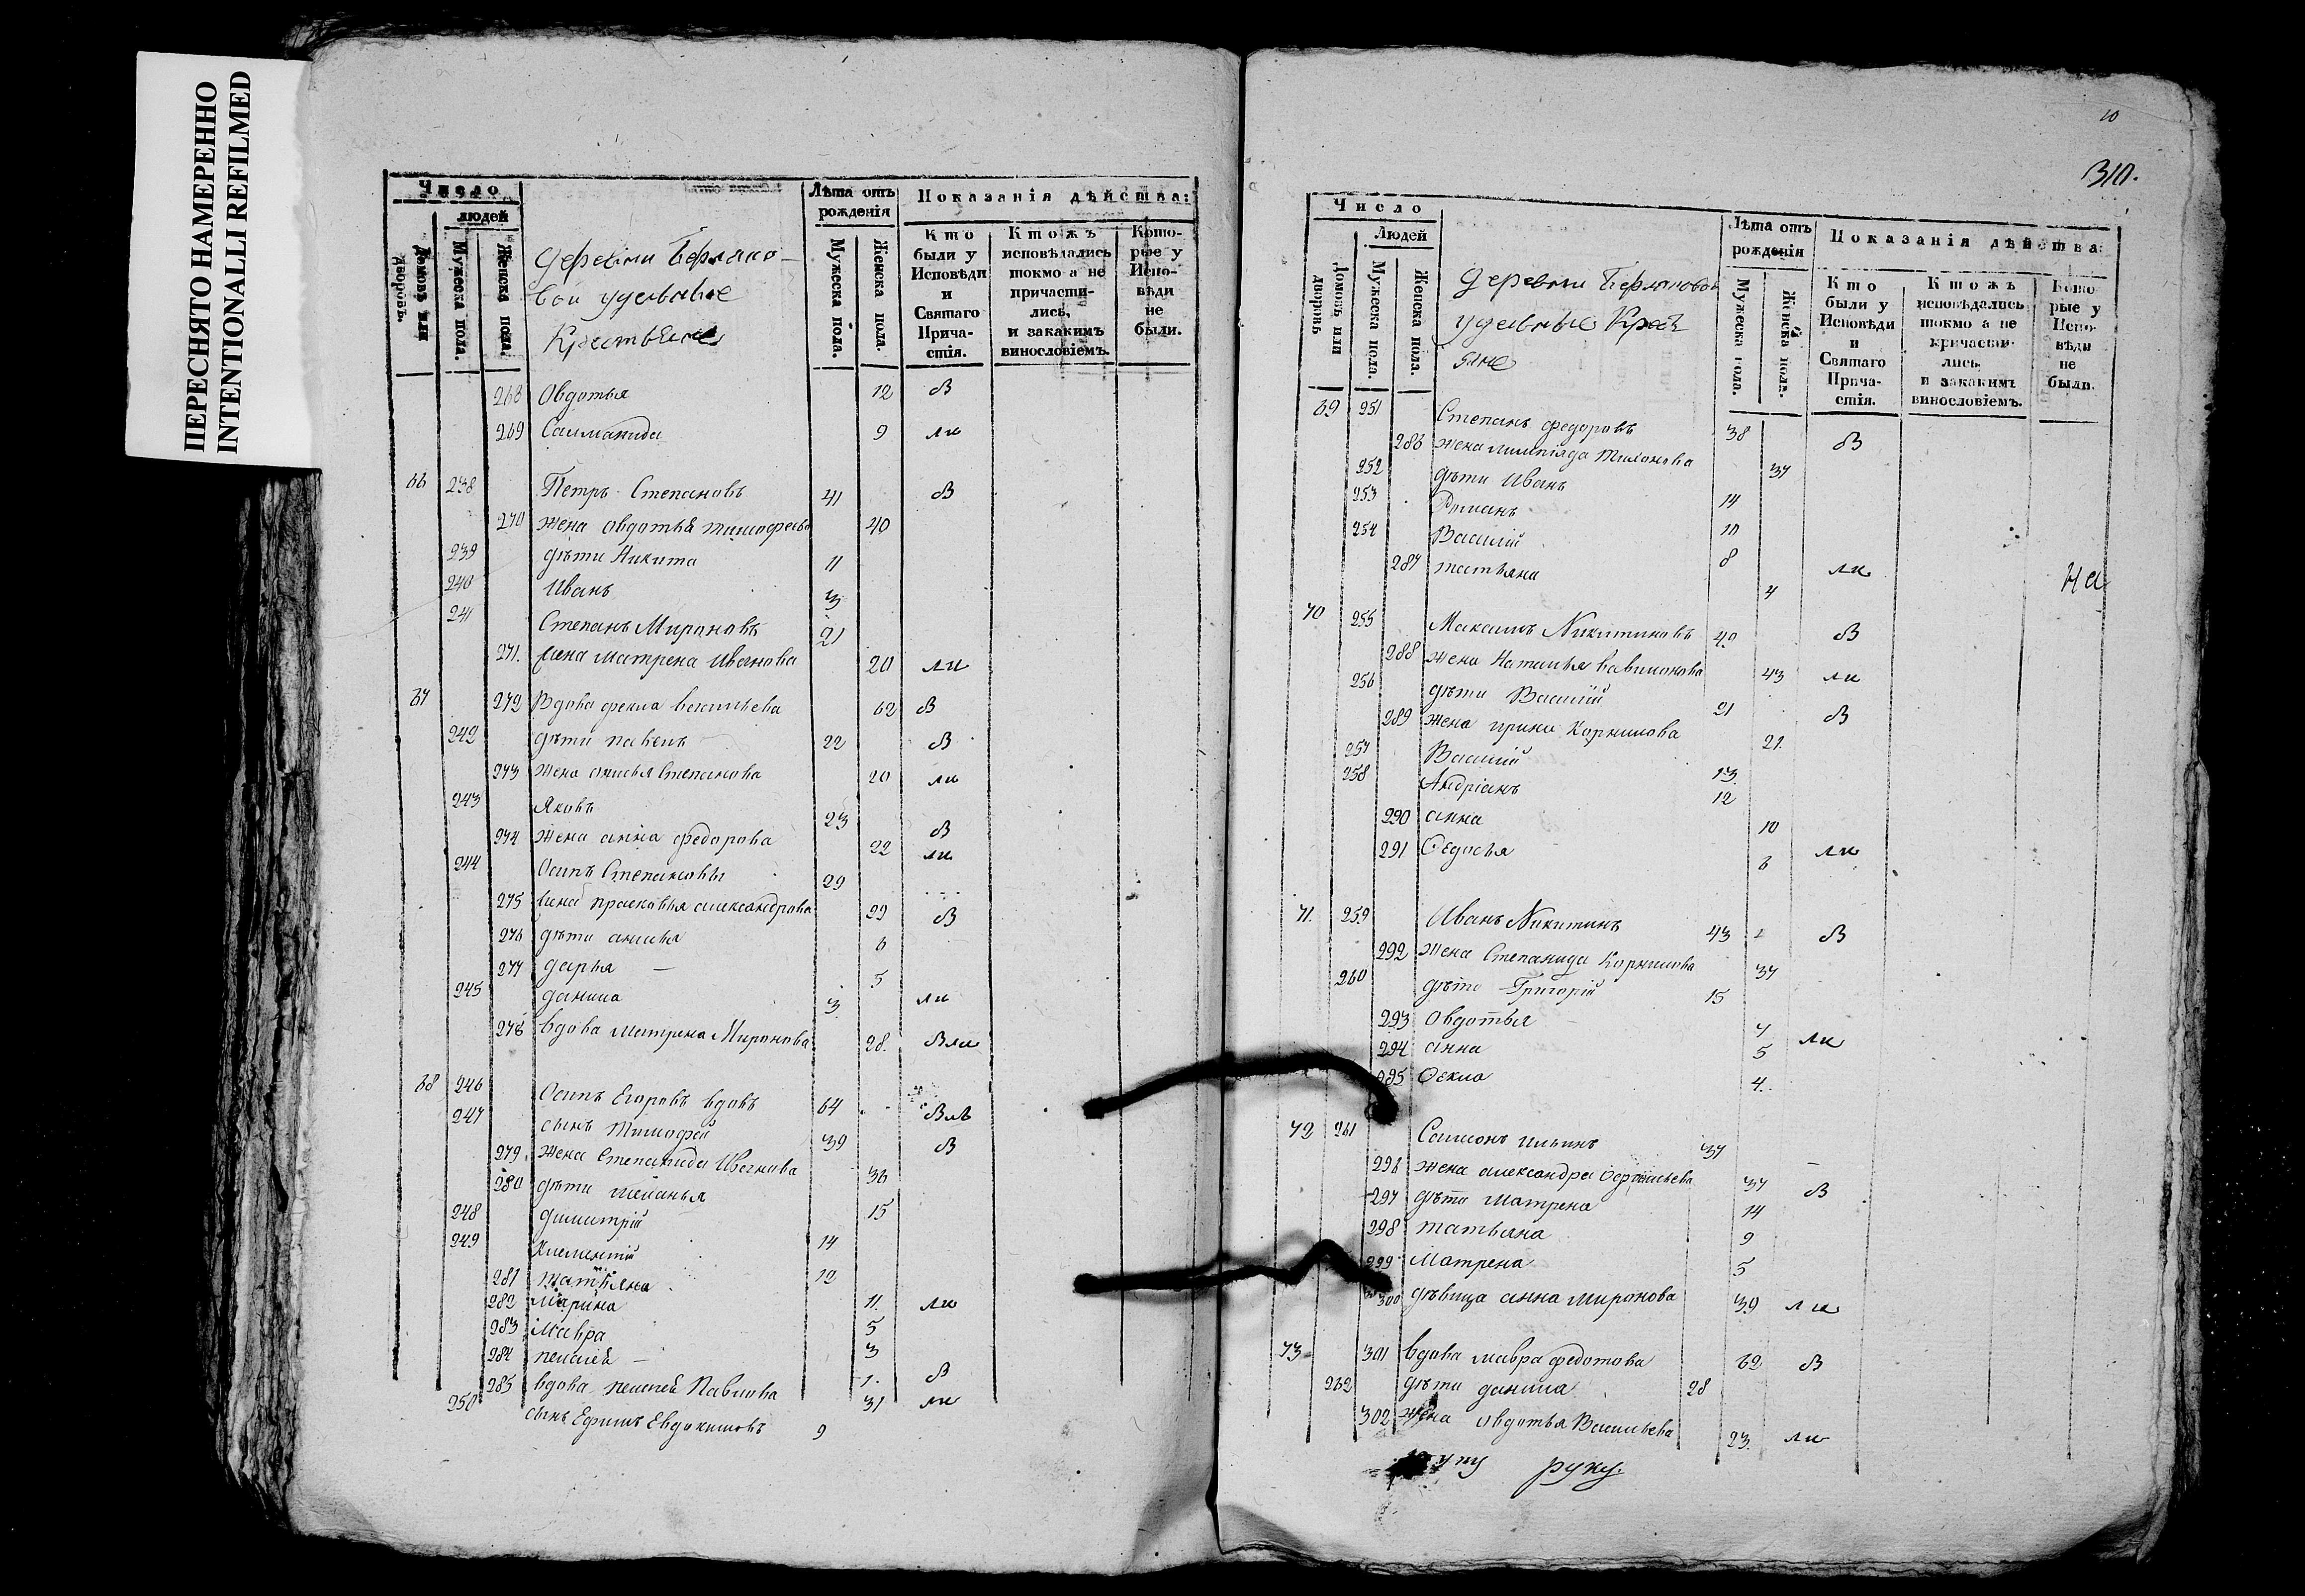 ПЕРЕСНЯТО НАМЕРЕННО
INTENTIONALLI REFILMED
Число
людей
Домовъ или дворовъ.
Мужеска пола.
Женска пола.
Деревни Берляко-
вои удельные
Крестьяне
Лѣта отъ рожденія
Мужеска пола.
Женска пола.
Показанія дѣйства:
Кто были у Исповѣди и Святаго Причастія.
Ктожъ исповѣдались токмо а не причастились, и закакимъ винословіемъ.
Которые у Исповѣди не были.
268 Овдотья 12 В
269 9 ли
66 238 Петръ Степановъ 41 В
270 жена овдотья тимофеева 40
239 дѣти Никита 11
240 Иванъ 3
241 Степанъ Мироновъ 21
271. жена матрена Иванова 20 ли
67 272 Вдова фекла васильева 62 В
242 дѣти павелъ 22 В
273 жена анисья Степанова 20 ли
243 Яковъ 23 В
274 жена анна федорова 22 ли
244 Осипъ Степановъ 29
275 жена прасковья александрова 29 В
276 дѣти анисья 6
277 дарья — 5
245 данила 3 ли
278 вдова матрена Миронова 28. Вли
68 246 Осипъ Егоровъ вдовъ 64
247 сынъ Тимофей 39 В
279 жена Степанида Иванова 36
280 дѣти меланья 15
248 димитрій 14
249 Климентій 12
281 татьяна 11. ли
282 Марина 5
283 Мавра 3
284 пелагея — 1.
285 вдова пелагея Павлова 31 В
250 сынъ Ефимъ Евдокимовъ 9 ли
10
310.
Число
Людей
Домовъ или дворовъ
Мужеска пола.
Женска пола.
Деревни Берляковой
удельные Крестъ
яне
Лѣта отъ рожденія
Мужеска пола.
Женска пола.
Показанія дѣйства:
Кто были у Исповѣди и Святаго Причастія.
Ктожъ исповѣдались токмо а не причастились, и закакимъ винословіемъ.
Которые у Исповѣди не были.
69 251 Степанъ федоровъ 38 В
286 жена Тихонова 37
252 дѣти Иванъ 14
253 10
254 Василій 8
287 татьяна 4 ли
На
70 255 Максимъ Никитиновъ 42 В
288 жена Наталья 43 ли
256 дѣти Василій 21 В
289 жена ирина Корнилова 21.
257 Василій 13
258 Андріанъ 12
290 анна 10
291 Ѳедосья 6 ли
71. 259 Иванъ Никитинъ 43 В
292 жена Степанида Корнилова 37
260 дѣти Григорій 15
293 Овдотья 7
294 анна 5 ли
295 Ѳекла 4.
72 261 Самсонъ ильинъ 37
296 жена александра 37 В
297 дѣти Матрена 14
298 татьяна 9
299 Матрена 5
300 дѣвица анна миронова 39 ли
73 301 вдова мавра федотова 62 В
262 дѣти данила 28
302 жена овдотья Васильева 23. ли
руку.